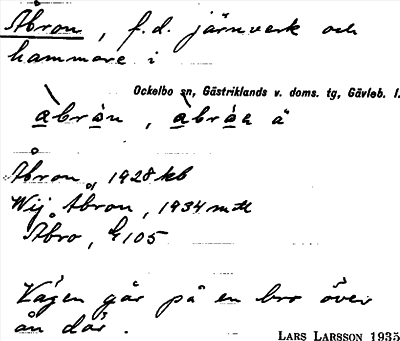 Åbron, f.d. järnverk och
hammare i
Ockelbo sn, Gästriklands v. doms. tg, Gävleb. l.
åbròn, åbròn ä
Åbron, 1928 kb
Wij o. Åbron, 1934 mtl
Åbro, G 105
Vägen går på en bro över
ån där.
LARS LARSSON 1935